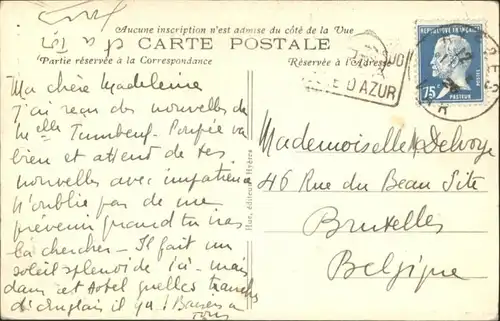 Aucune inscription n'est admise du côté de la Vue
CARTE POSTALE
Partie réservée à la Correspondance
Réservée à l'Adresse
D'AZUR
RÉPUBLIQUE FRANÇAISE
75
PASTEUR
POSTES
VAR
Ma chère Madeleine
J'ai reçu des nouvelles de
Melle Poupée va
bien et attend de tes
nouvelles avec impatience
N'oublie pas de me
prévenir quand tu iras
la chercher - Il fait un
soleil splendide ici - mais
dans cet hotel quelles tranches
d'Anglais il ya! Baisers à
tous
Hue, éditeur, Hyères
Mademoiselle M Delvoye
46 Rue du Beau Site
Bruxelles
Belgique